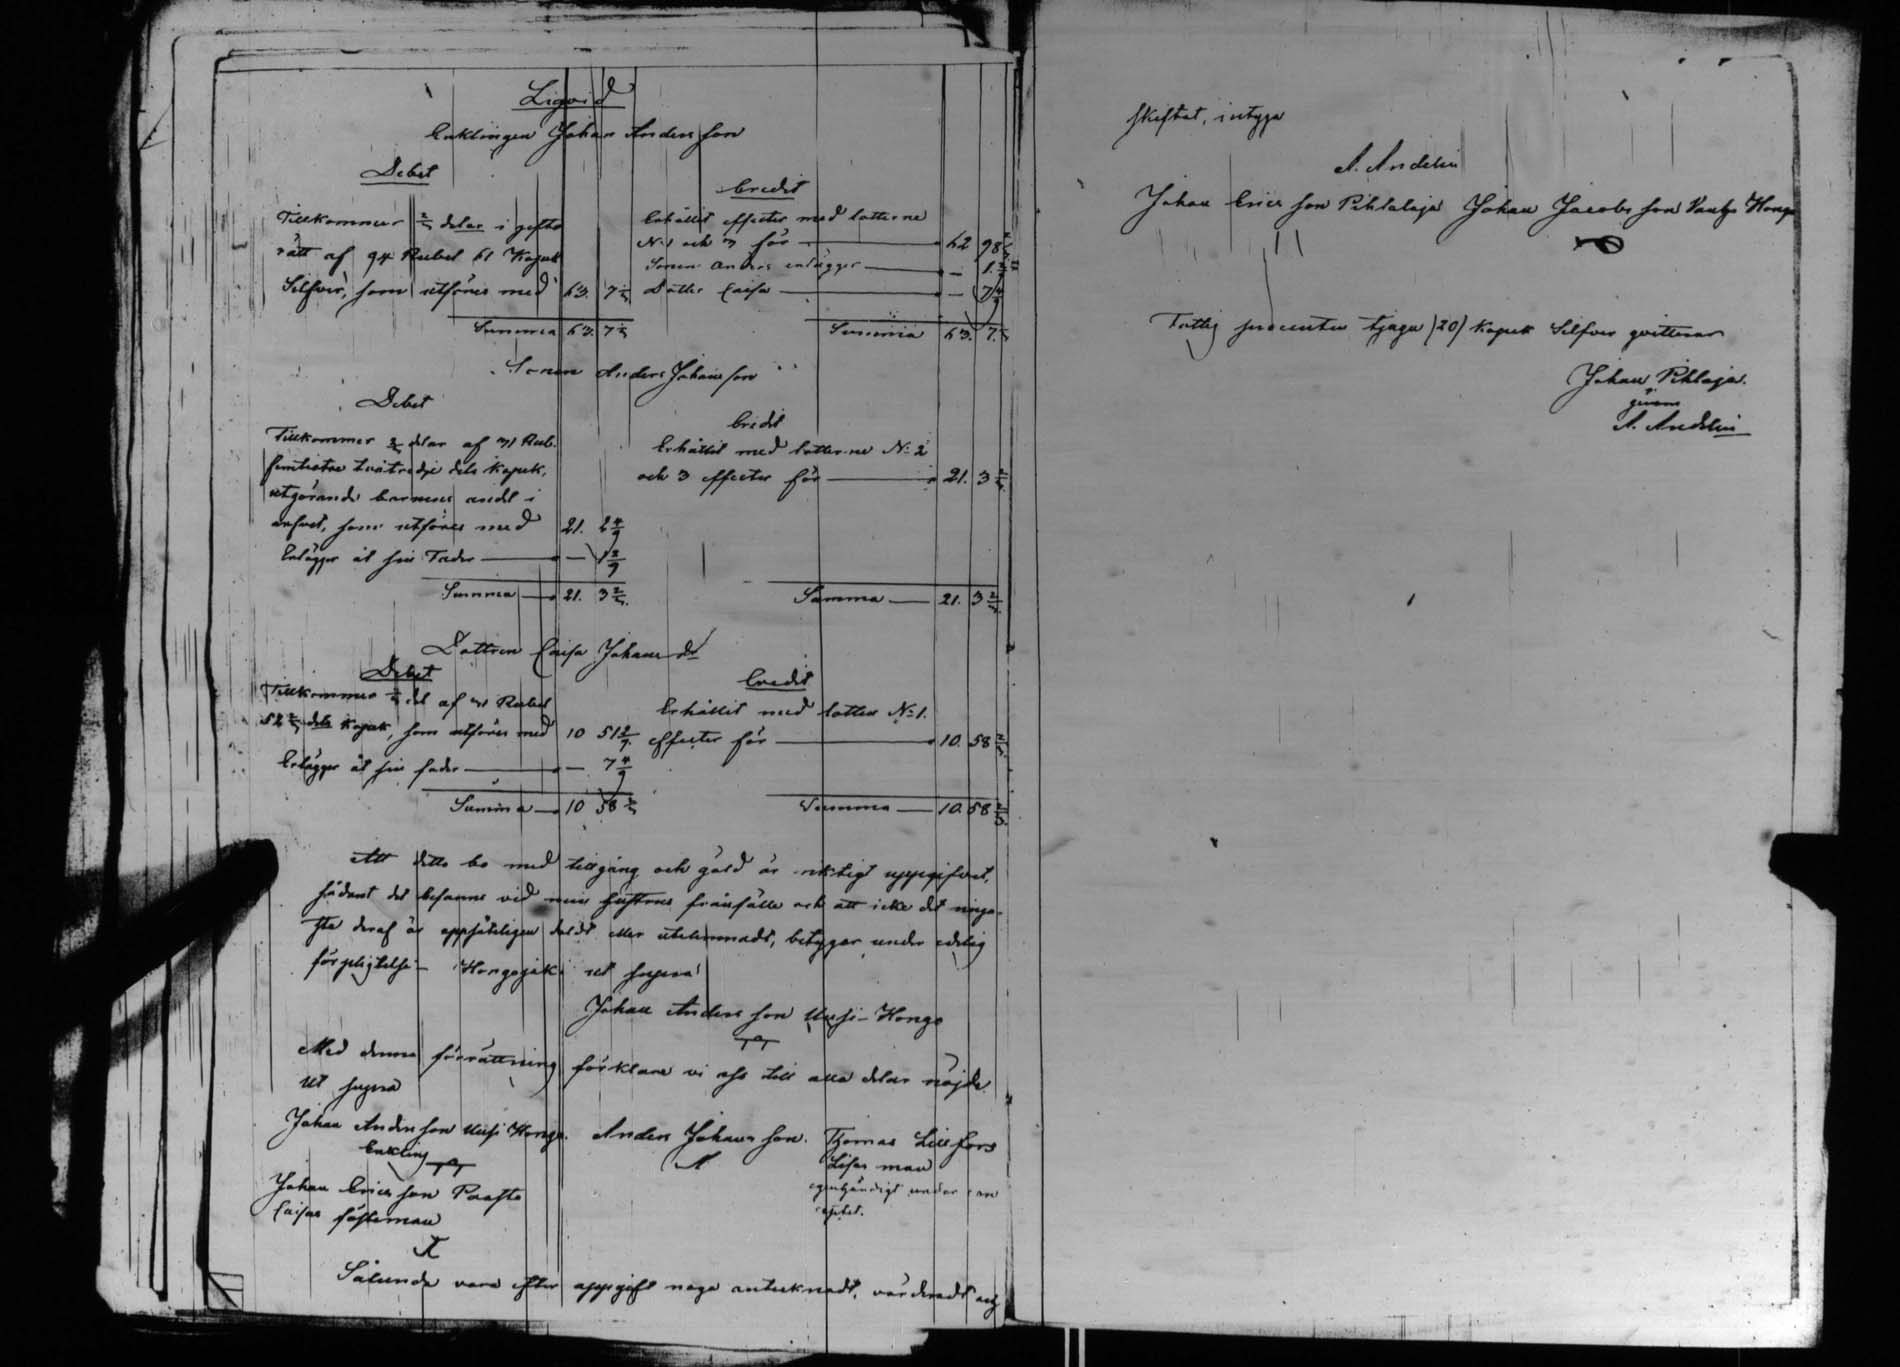 Liqvid
Enklingen Johan Andersson
Debet
Tillkommer 2/3 delar i gifto
rätt af 94 Rubel 61 Kopek
Silfver, som utföres med 63. 7 1/3
Summa 63. 7 1/3
Credit
Erhållit effecter med lotterne
N:1 och 3 för 62 98 2/3
Sonen Anders erlägger — 1.
Dotter Caisa — 7 4/9
Summa 63. 7. 1/3
Sonen Anders Johansson
Debet
Tillkommer 2/3 delar af 31 Rub.
femtiotvå tvåtredje dels kopek,
utgörande barnens andel i
arfvet, som utföres med 21. 2 4/9
Erlägger åt sin Fader —
Summa 21. 3 2/3.
Credit
Erhållit med lotterne N:2
och 3 effecter för 21. 3 2/3
Summa 21. 3 2/3
Dottren Caisa Johansdr
Debet
Tillkommer 1/3 del af 31 Rubel
52 2/3 dels kopek, som utföres med 10 51 2/9
Erlägger åt sin fader — 7 4/9
Summa 10 58 2/3
Credit
Erhållit med lotten N:1.
effecter för 10. 58 2/3
Summa 10. 58 2/3
Att detta bo med tillgång och gäld är riktigt uppgifvet,
sådant det befanns vid min hustrus frånfälle och att icke det ringa-
ste deraf är uppsåteligen doldt eller utelemnadt, betygar under edelig
förpligtelse Hongojoki ut supra
Johan Andersson Uusi-Hongo
Med denna förrättning förklare vi oss till alla delar nöjde.
ut supra
Johan Andersson Uusi Hongo. Anders Johansson. Thomas Lillfors
Enkling
Lisas man
egenhändigt under
Johan Ericsson Paasto
Caisas fästeman
Sålunda vara efter uppgift noga antecknadt, värderadt och
skiftat, intyga
A. Andelin
Johan Ericsson Pihlalaja Johan Jacobsson Vanha Hongo
Fattig procenter tjugu (20) kopek Silfver qvitterar
Johan Pihlaja.
genom
A. Andelin